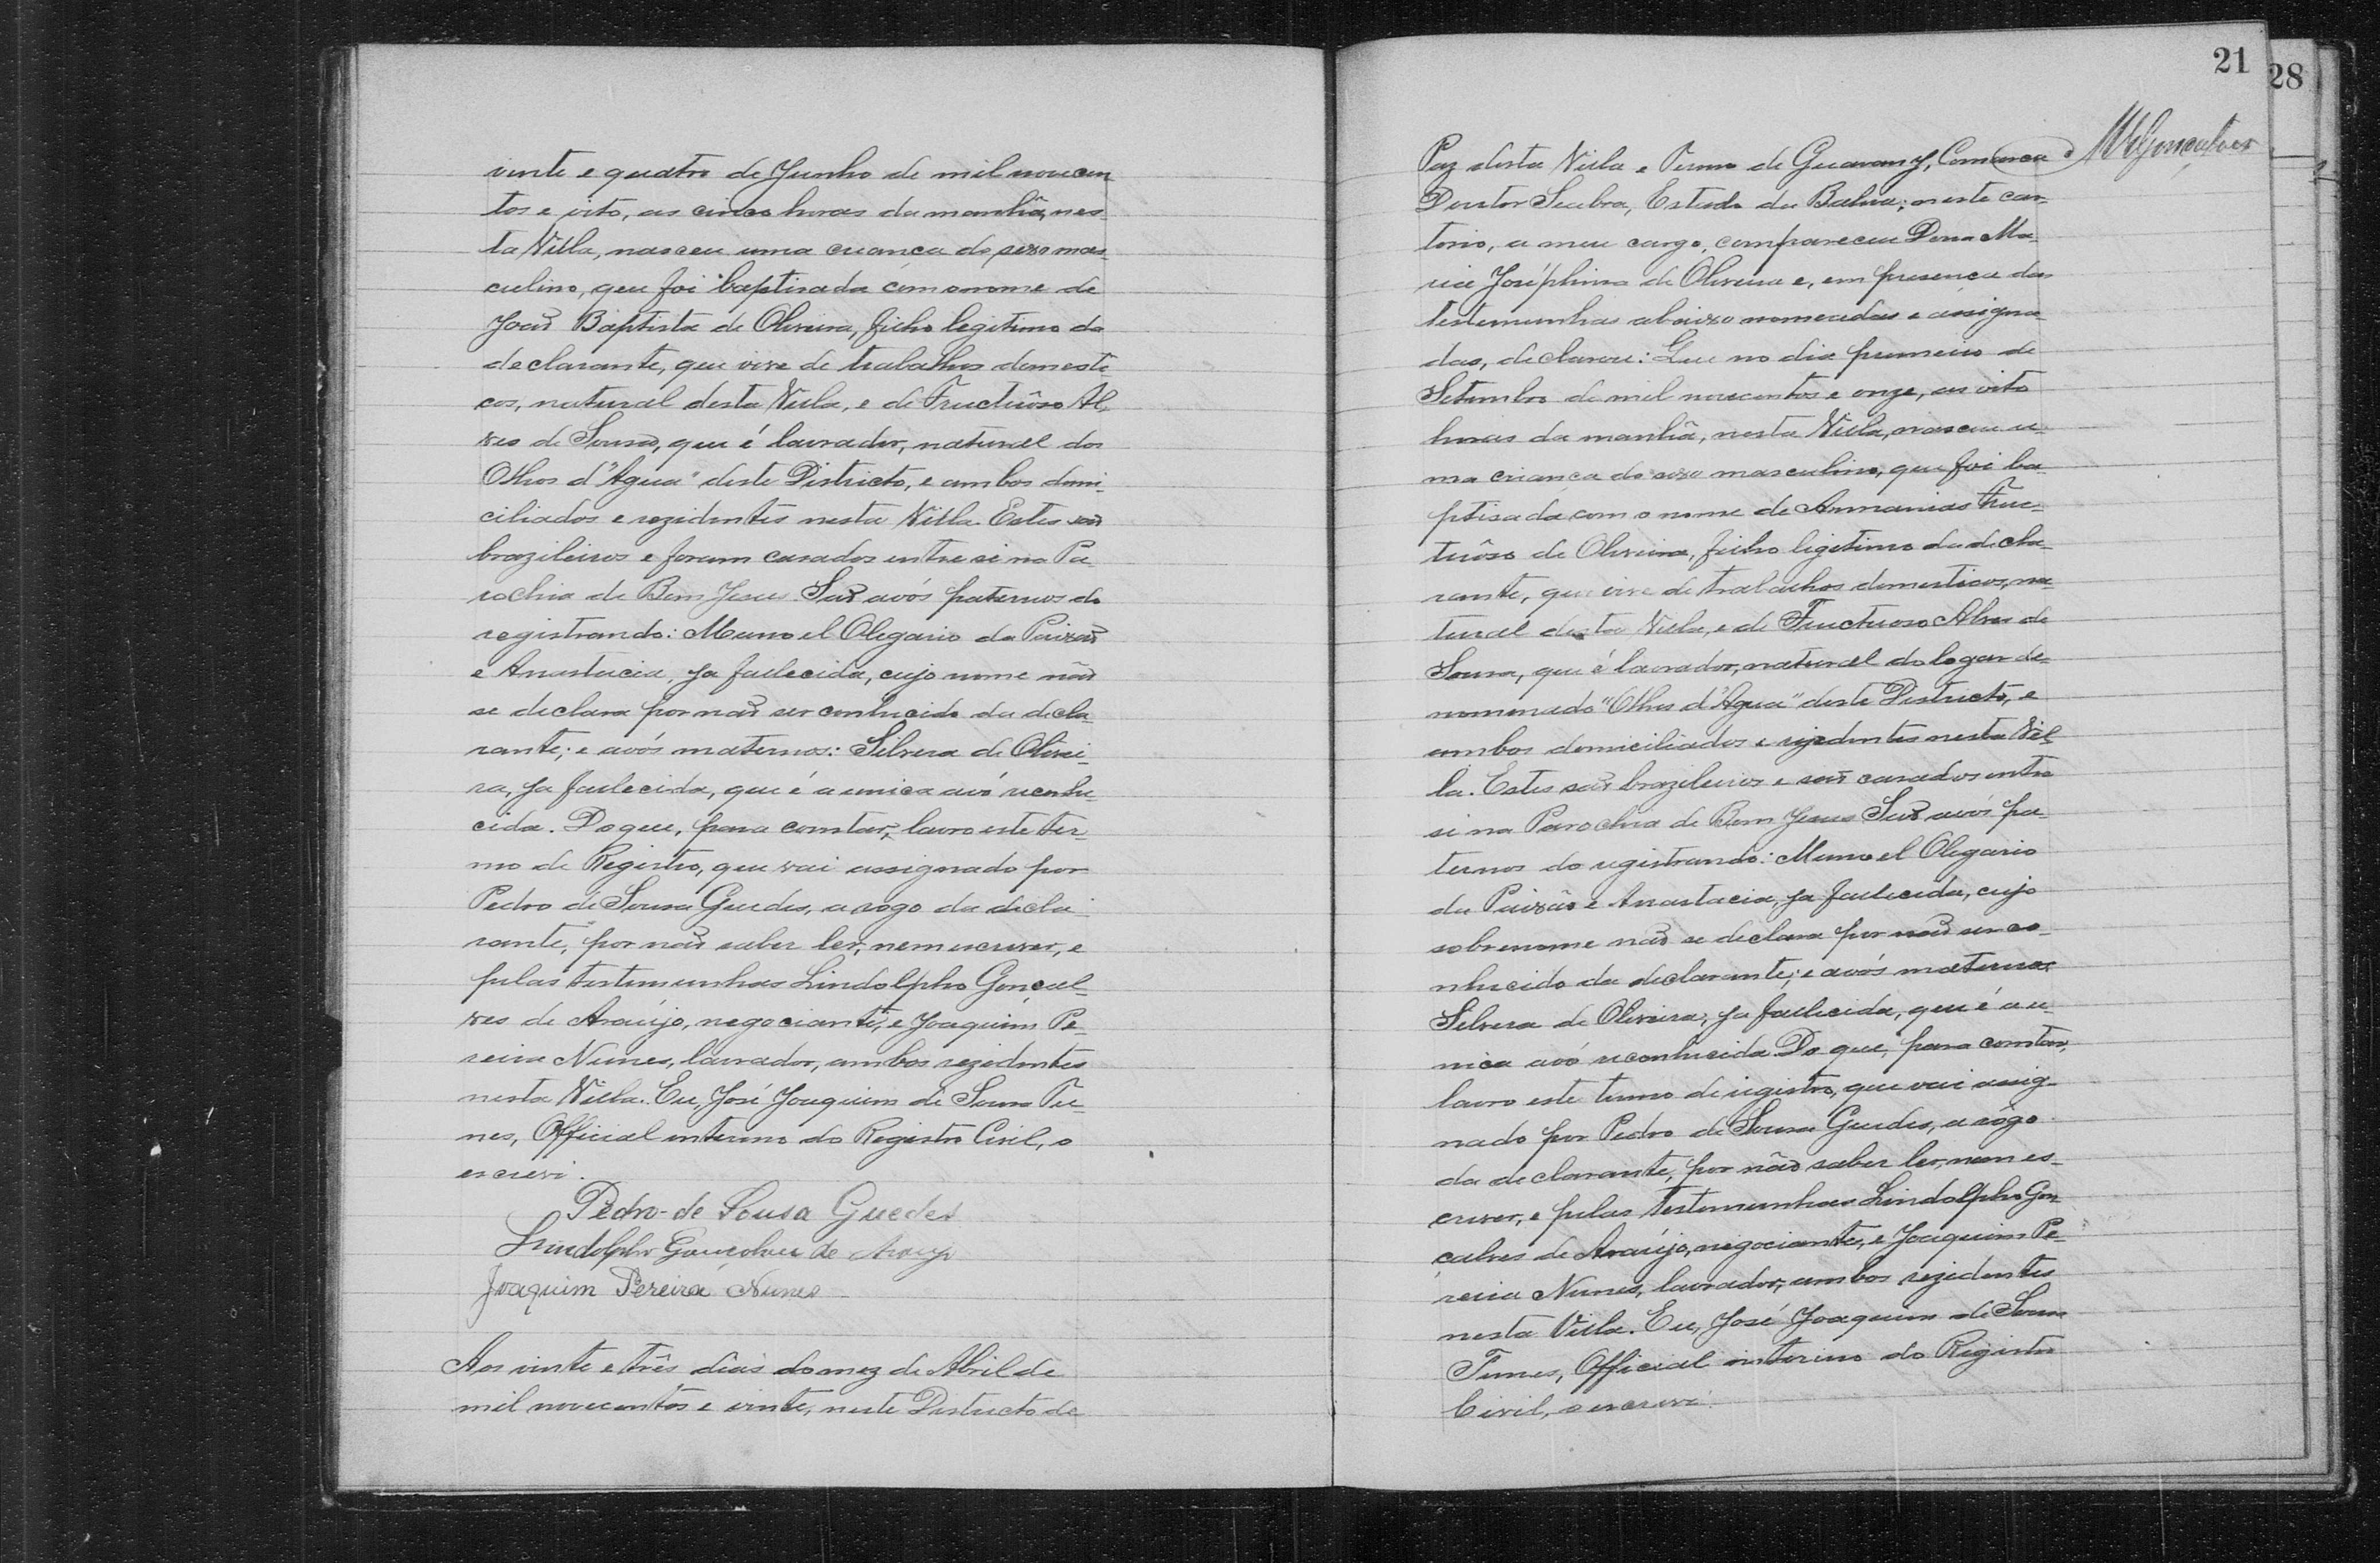 vinte e quatro de Junho de mil novecen
tos e oito, as cinco horas da manhã, nes
ta Villa, nasceu uma criança do sexo mas-
culino, que foi baptisada com o nome de
João Baptista de Oliveira, filho legitimo da
declarante, que vive de trabalhos domesti-
cos, natural desta Villa, e de Fructuôso Al-
ves de Sousa, que é lavrador, natural dos
Olhos d'Agua" deste Districto, e ambos domi-
ciliados e rezidentes nesta Villa. Estes são
brazileiros e foram casados entre si na Pa-
rochia de Bom Jesus. São avós paternos do
registrando: Manoel Olegario da Paixão
e Anastacia, ja fallecida, cujo nome não
se declara por não ser conhecido da decla-
rante; e avós maternos: Silveria de Olivei-
ra, ja fallecida, que é a unica avó reconhe-
cida. Do que, para constar, lavro este ter-
mo de Registro, que vai assignado por
Pedro de Sousa Guedes, a rogo da decla-
rante, por não saber ler, nem escrever, e
pelas testemunhas Lindolpho Gonçal-
ves de Araújo, negociante, e Joaquim Pe-
reira Nunes, lavrador, ambos rezidentes
nesta Villa. Eu, José Joaquim de Sousa Fu-
nes, Official interino do Registro Civil, o
escrevi.
Pedro de Sousa Guedes
Lindolpho Gonçalves de Araujo
Joaquim Pereira Nunes
Aos vinte e três dias do mez de Abril de
mil novecentos e vinte, neste Districto de
21
28
Paz desta Villa e Termo de Guarany, Comarca
Doutor Seabra, Estado da Bahia; neste car-
torio, a meu cargo, compareceu Dona Ma-
ria Joséphina de Oliveira e, em presença das
testemunhas abaixo nomeadas e assigna-
das, declarou: Que no dia primeiro de
Setembro de mil novecentos e onze, as oito
horas da manhã, nesta Villa, nasceu u-
ma criança do sexo masculino, que foi ba-
ptisada com o nome de Annanias Fruc-
tuôso de Oliveira, filho legitimo da decla-
rante, que vive de trabalhos domesticos, na-
tural desta Villa, e de Fructuoso Alves de
Sousa, que é lavrador, natural do logar de-
nominado "Olhos d'Agua" deste Districto, e
ambos domiciliados e rezidentes nesta Vil-
la. Estes são brazileiros e são casados entre
si na Parochia de Bom Jesus. São avós pa-
ternos do registrando: Manoel Olegario
da Paixão e Anastacia, ja fallecida, cujo
sobrenome não se declara por não ser co-
nhecido da declarante; e avós maternos
Silveria de Oliveira, ja fallecida, que é a u-
nica avó reconhecida. Do que, para constar,
lavro este termo de registro, que vai assig-
nado por Pedro de Sousa Guedes, a rôgo
da declarante, por não saber ler, nem es-
crever, e pelas testemunhas Lindolpho Gon
çalves de Araújo, negociante, e Joaquim Pe-
reira Nunes, lavrador, ambos rezidentes
nesta Villa. Eu, José Joaquim de Sousa
Funes, Official interino do Registro
Civil, o escrevi.